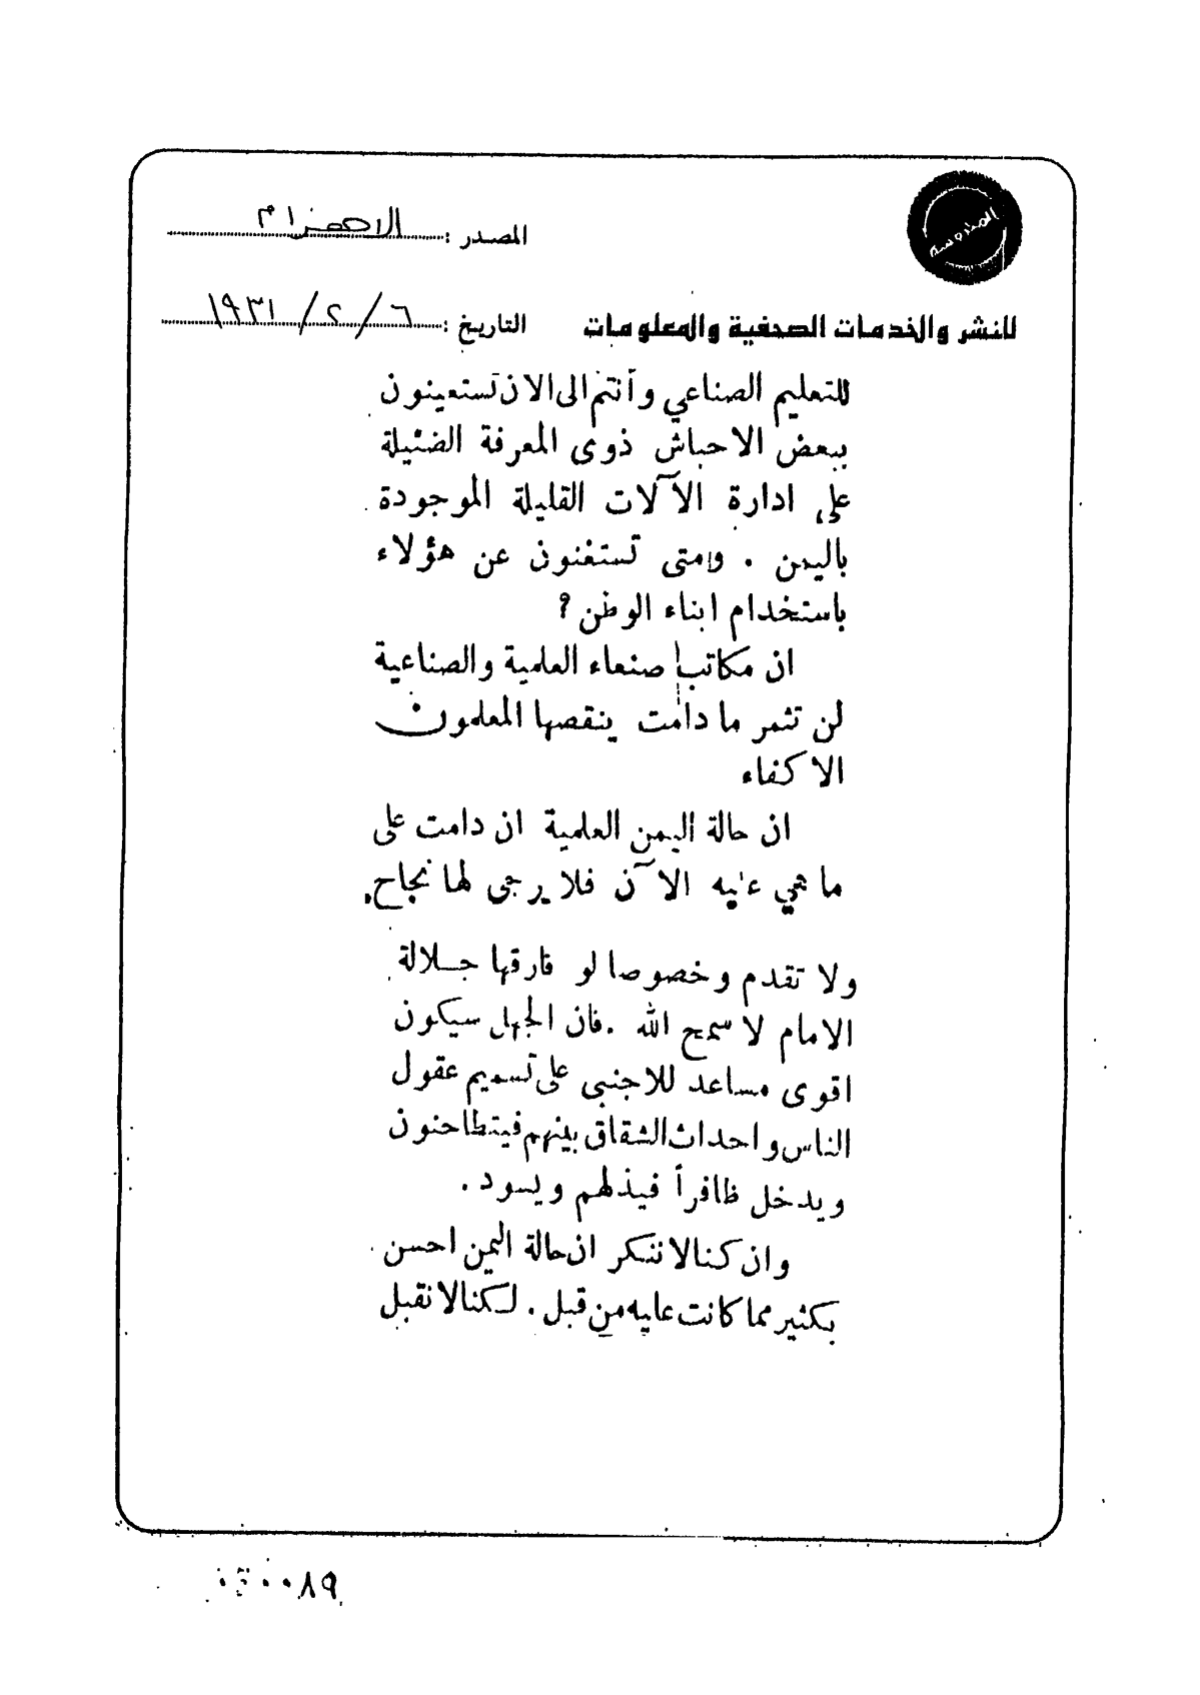 المحروسة
المصدر : الاهرام
للنشر والخدمات الصحفية والمعلومات
التاريخ : ٦ / ٢ / ١٩٣١
للتعليم الصناعي وأنتم الى الان تستعينون
ببعض الاحباش ذوى المعرفة الضئيلة
على ادارة الآلات القليلة الموجودة
باليمن . ومتى تستغنون عن هؤلاء
باستخدام ابناء الوطن ؟
ان مكاتب صنعاء العلمية والصناعية
لن تثمر ما دامت ينقصها المعلمون
الاكفاء
ان حالة اليمن العلمية ان دامت على
ما هي عليه الآن فلا يرجى لها نجاح
ولا تقدم وخصوصا لو فارقها جلالة
الامام لا سمح الله . فان الجهل سيكون
اقوى مساعد للاجنبى على تسميم عقول
الناس واحداث الشقاق بينهم فيتطاحنون
ويدخل ظافراً فيذلهم ويسود .
وان كنا لا ننكر ان حالة اليمن احسن
بكثير مما كانت عليه من قبل . لكننا لا نقبل